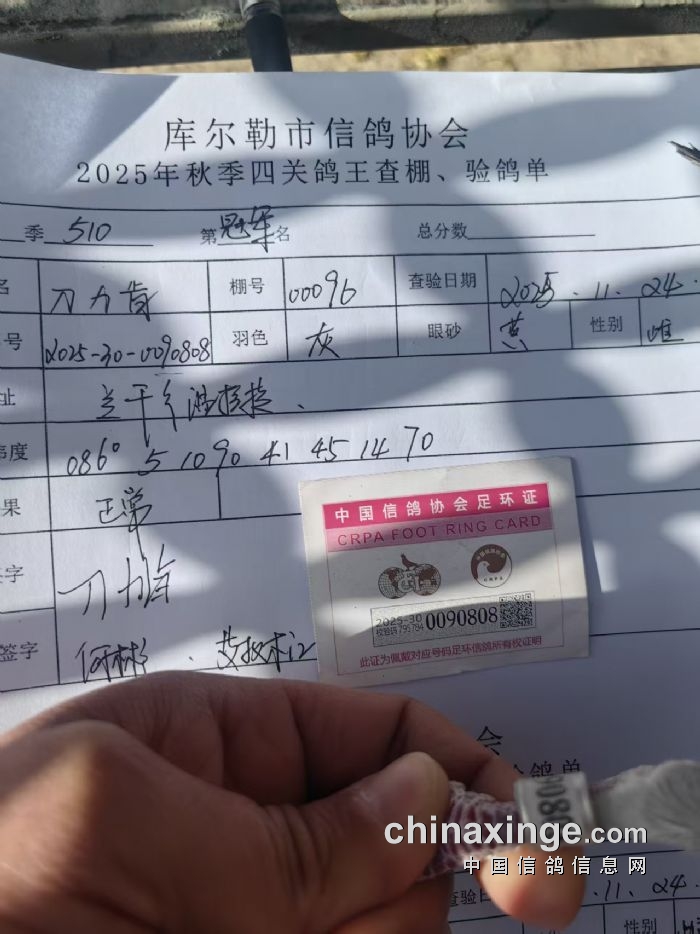 库尔勒市信鸽协会
2025年秋季四关鸽王查棚、验鸽单
季 510 第 冠军 名 总分数
名 刀力肯 棚号 00096 查验日期 2025.11.24.
号 2025-30-0090808 羽色 灰 眼砂 黄 性别 雌
址 兰干乡
度 086° 5 10 90 41 45 14 70
果 正常
字
签字 何彬
中国信鸽协会足环证
CRPA FOOT RING CARD
2025-30
校验码795784 0090808
此证为佩戴对应号码足环信鸽所有权证明
会
验鸽单
908
chinaxinge.com
中国信鸽信息网
查验日 .11.24.
性别